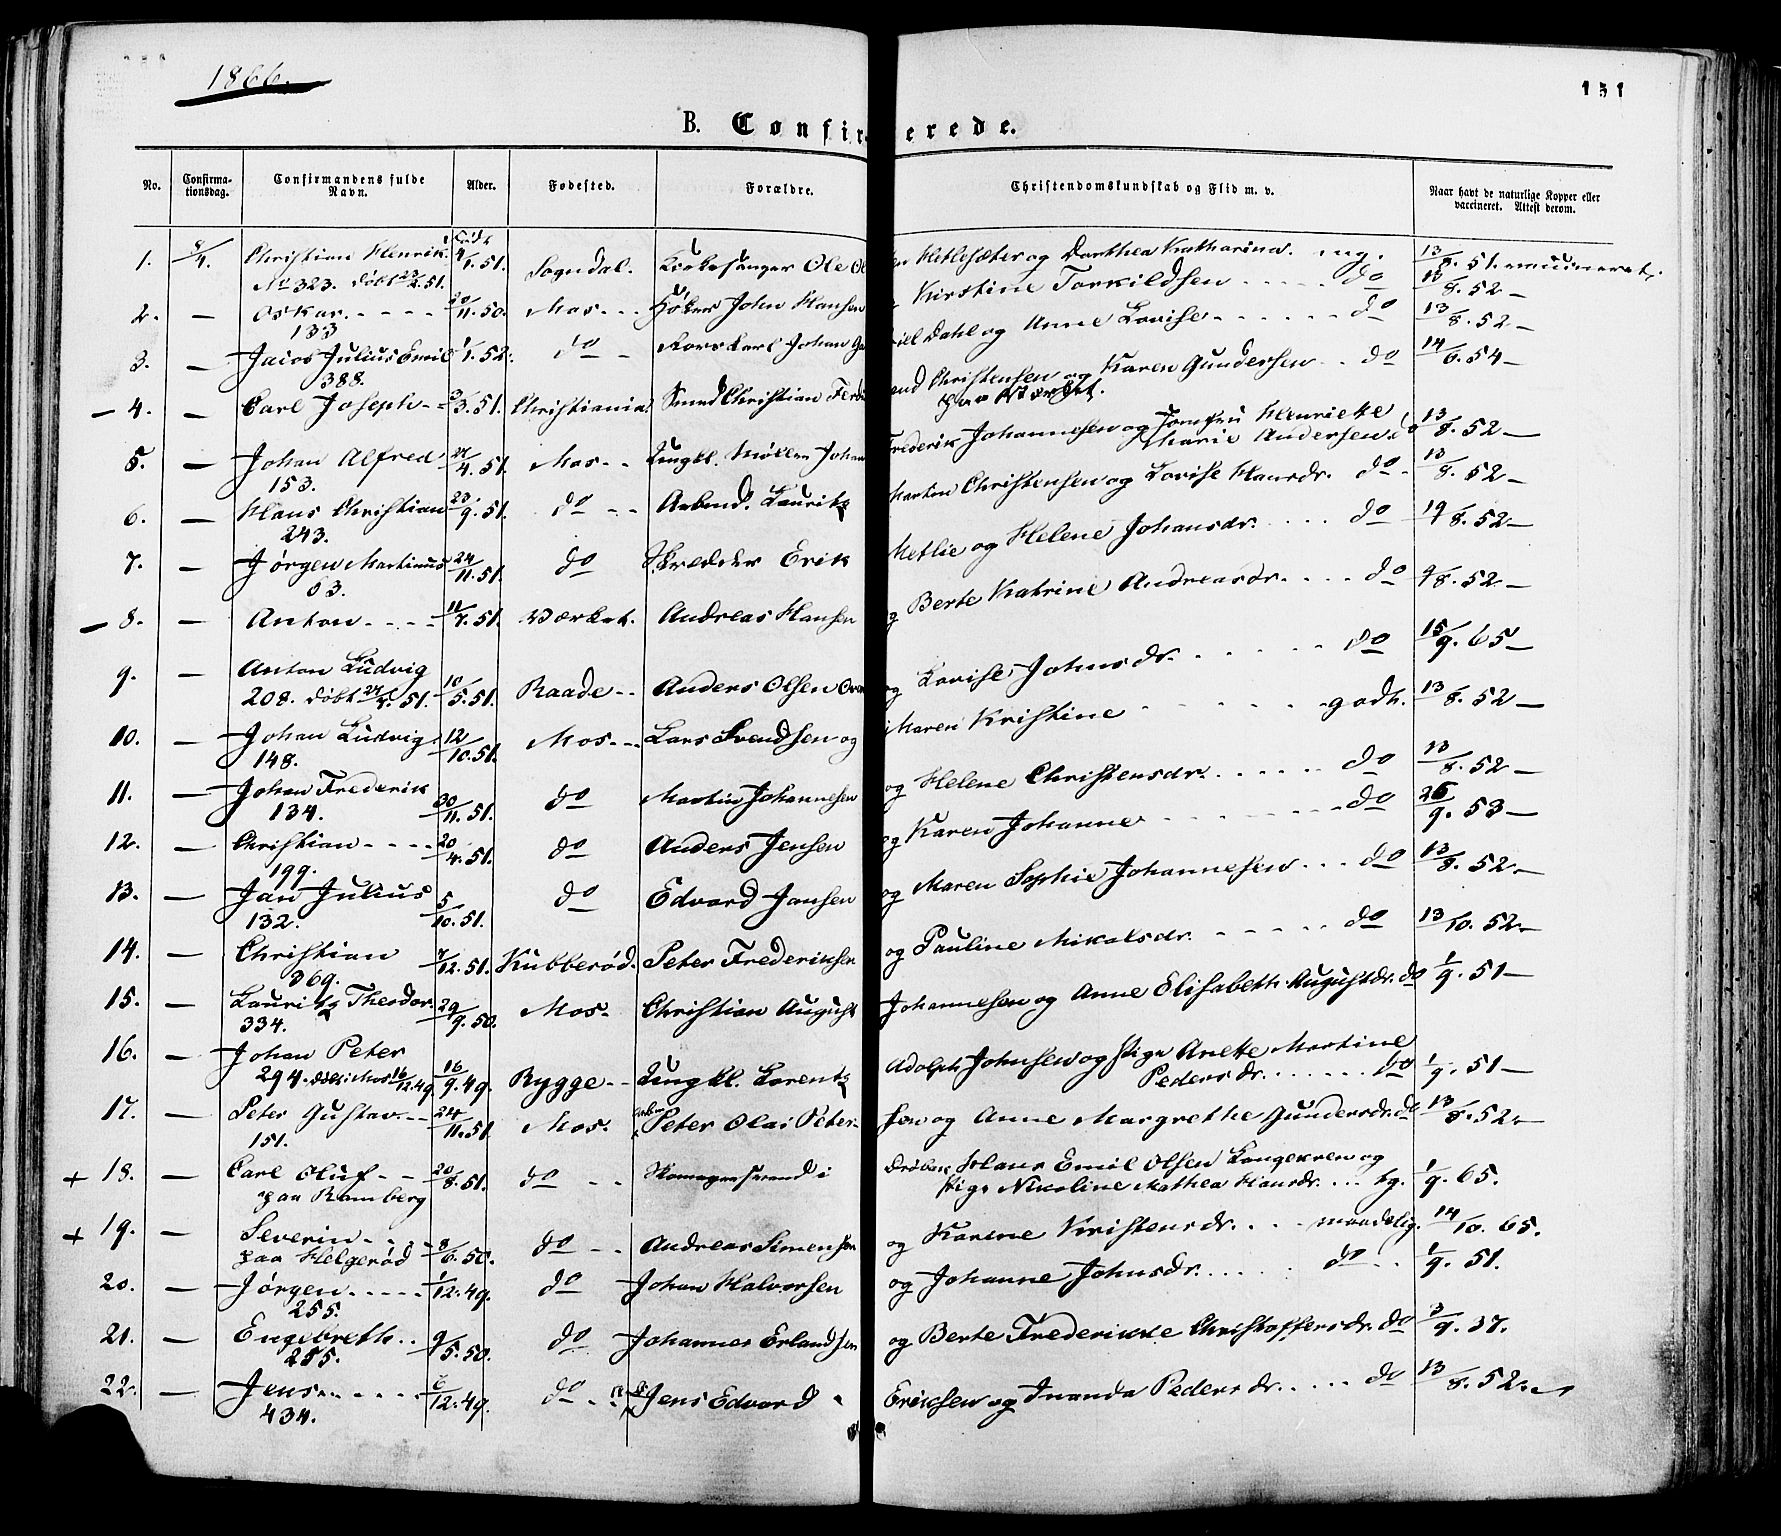 1866.
151
B. Confirmerede.
No. Confirma-tionsdag. Confirmandens fulde Navn. Alder. Fødested. Forældre. Christendomskundskab og Flid m. v. Naar havt de naturlige Kopper eller vaccineret. Attest derom.
1. 8/4. Christian Henrik. 4/1. 51. Sogndal. Kirkesanger Ole Hetlesæter og Dorthea Katharina. mg. 13/8. 51. vaccineret.
No 323. døbt 23/2. 51.
2. — Oskar. - - - - 20/11. 50. Mos - - - Høker John Hansen Kirstine Torkildsen - - - - - do 18/8. 52 —
133
3. — Jacob Julius Emil 1/1. 52. do - Karl Johan Dahl og Anne Lovise - - - - - - do 13/8. 52 —
388.
— 4. — Carl Joseph - - 3/3. 51. Christiania. Smed Christian Ferdinand Christensen og Karen Gundersen - - do 14/6. 54 —
paa Værket.
5. — Johan Alfred 21/4. 51. Mos - - Ungkl. Møller Johan Frederik Johannesen og Jomfru Henriette Marie Andersen. do 13/8. 52 —
153.
6. — Hans Christian 23/9. 51. do - - Arbmd. Lauritz Marton Christensen og Lovise Hansdr. do - 13/8. 52 —
243.
7. — Jørgen Martinus 24/11. 51. do Skredder Erik Metlie og Helene Johansdr. - - - - do 19/8. 52 —
63.
— 8. — Anton - - - - 11/7. 51. Værket. Andreas Hansen og Berte Katrine Andreasdr. - - - do 9/8. 52 —
9. — Anton Ludvig 10/5. 51. Raade - - Anders Olsen og Lovise Johnsdr. - - - - - - do 15/9. 65 —
208. døbt 51.
10. — Johan Ludvig 12/10. 51. Mos - - - Lars Svendsen og Maren Kristine - - - - - - godt. 13/8. 52 —
148.
11. — Johan Frederik 30/11. 51. do Martin Johannesen og Helene Christensdr. - - - - - do 13/8. 52 —
134.
12. — Christian - - - - 20/4. 51. do Anders Jensen og Karen Johanne - - - - - - - do 26/9. 53 —
199.
13. — Jan Julius 5/10. 51. do Edvard Jansen og Maren Sophie Johannesen - - - do 13/8. 52. —
132.
14. — Christian 7/12. 51. Kubberød. Peter Frederiksen og Pauline Mikalsdr. - - - - - do 13/10. 52 —
369.
15. — Lauritz Theodor 29/9. 50. Mos. Christian August Johannesen og Anne Elisabeth Augustdr. do 1/9. 51 —
334.
16. — Johan Peter 16/9. 49. Rygge - - Ungkl. Lorentz Adolph Johnsen og Pige Anette Martine Pedersdr. - - - - - - do 1/9. 51 —
294. døbt i Mos 16/12. 49
17. — Peter Gustav - - 24/11. 51 Mos. Peter Olai Petersen og Anne Margrethe Gundersdr. do 13/8. 52 —
151.
+ 18. — Carl Oluf - - 20/8. 51. do - - Skomagersvend i Drøbak Hans Emil Olsen Langekren og Pige Nikoline Mathea Hansdr. - - - tg. 1/9. 65.
paa Ramberg
+ 19. — Severin - - - - 8/6. 50. do - - Andreas Simensen og Karene Kristensdr. - - - maadelig. 14/10. 65.
paa Helgerød
20. — Jørgen - - - - - 1/12. 49. do Johan Halvorsen og Johanne Johnsdr. - - - - do - - 1/9. 51.
255.
21. — Engebreth - - 9/5. 50. do Johannes Erlandsen og Berte Frederikke Christoffersdr. do 3/9. 37.
255.
22. — Jens - - - - - 6/12. 49. do - - Jens Edvard Eriksen og Inanda Pedersdr. - - - - do 13/8. 52. —
434.